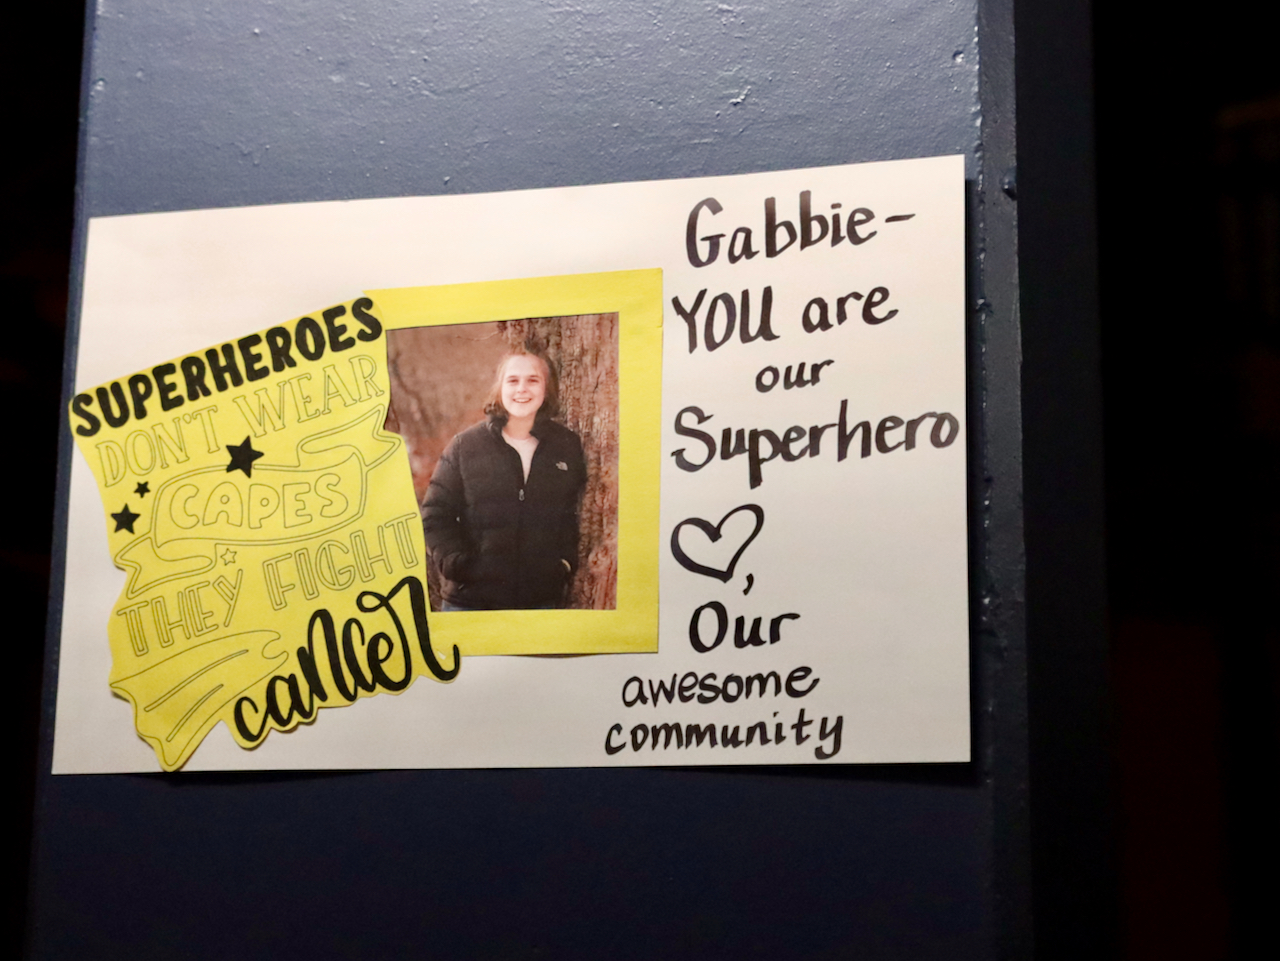 SUPERHEROES
DON'T WEAR
CAPES
THEY FIGHT
cancer
Gabbie-
YOU are
our
Superhero
♡,
Our
awesome
community